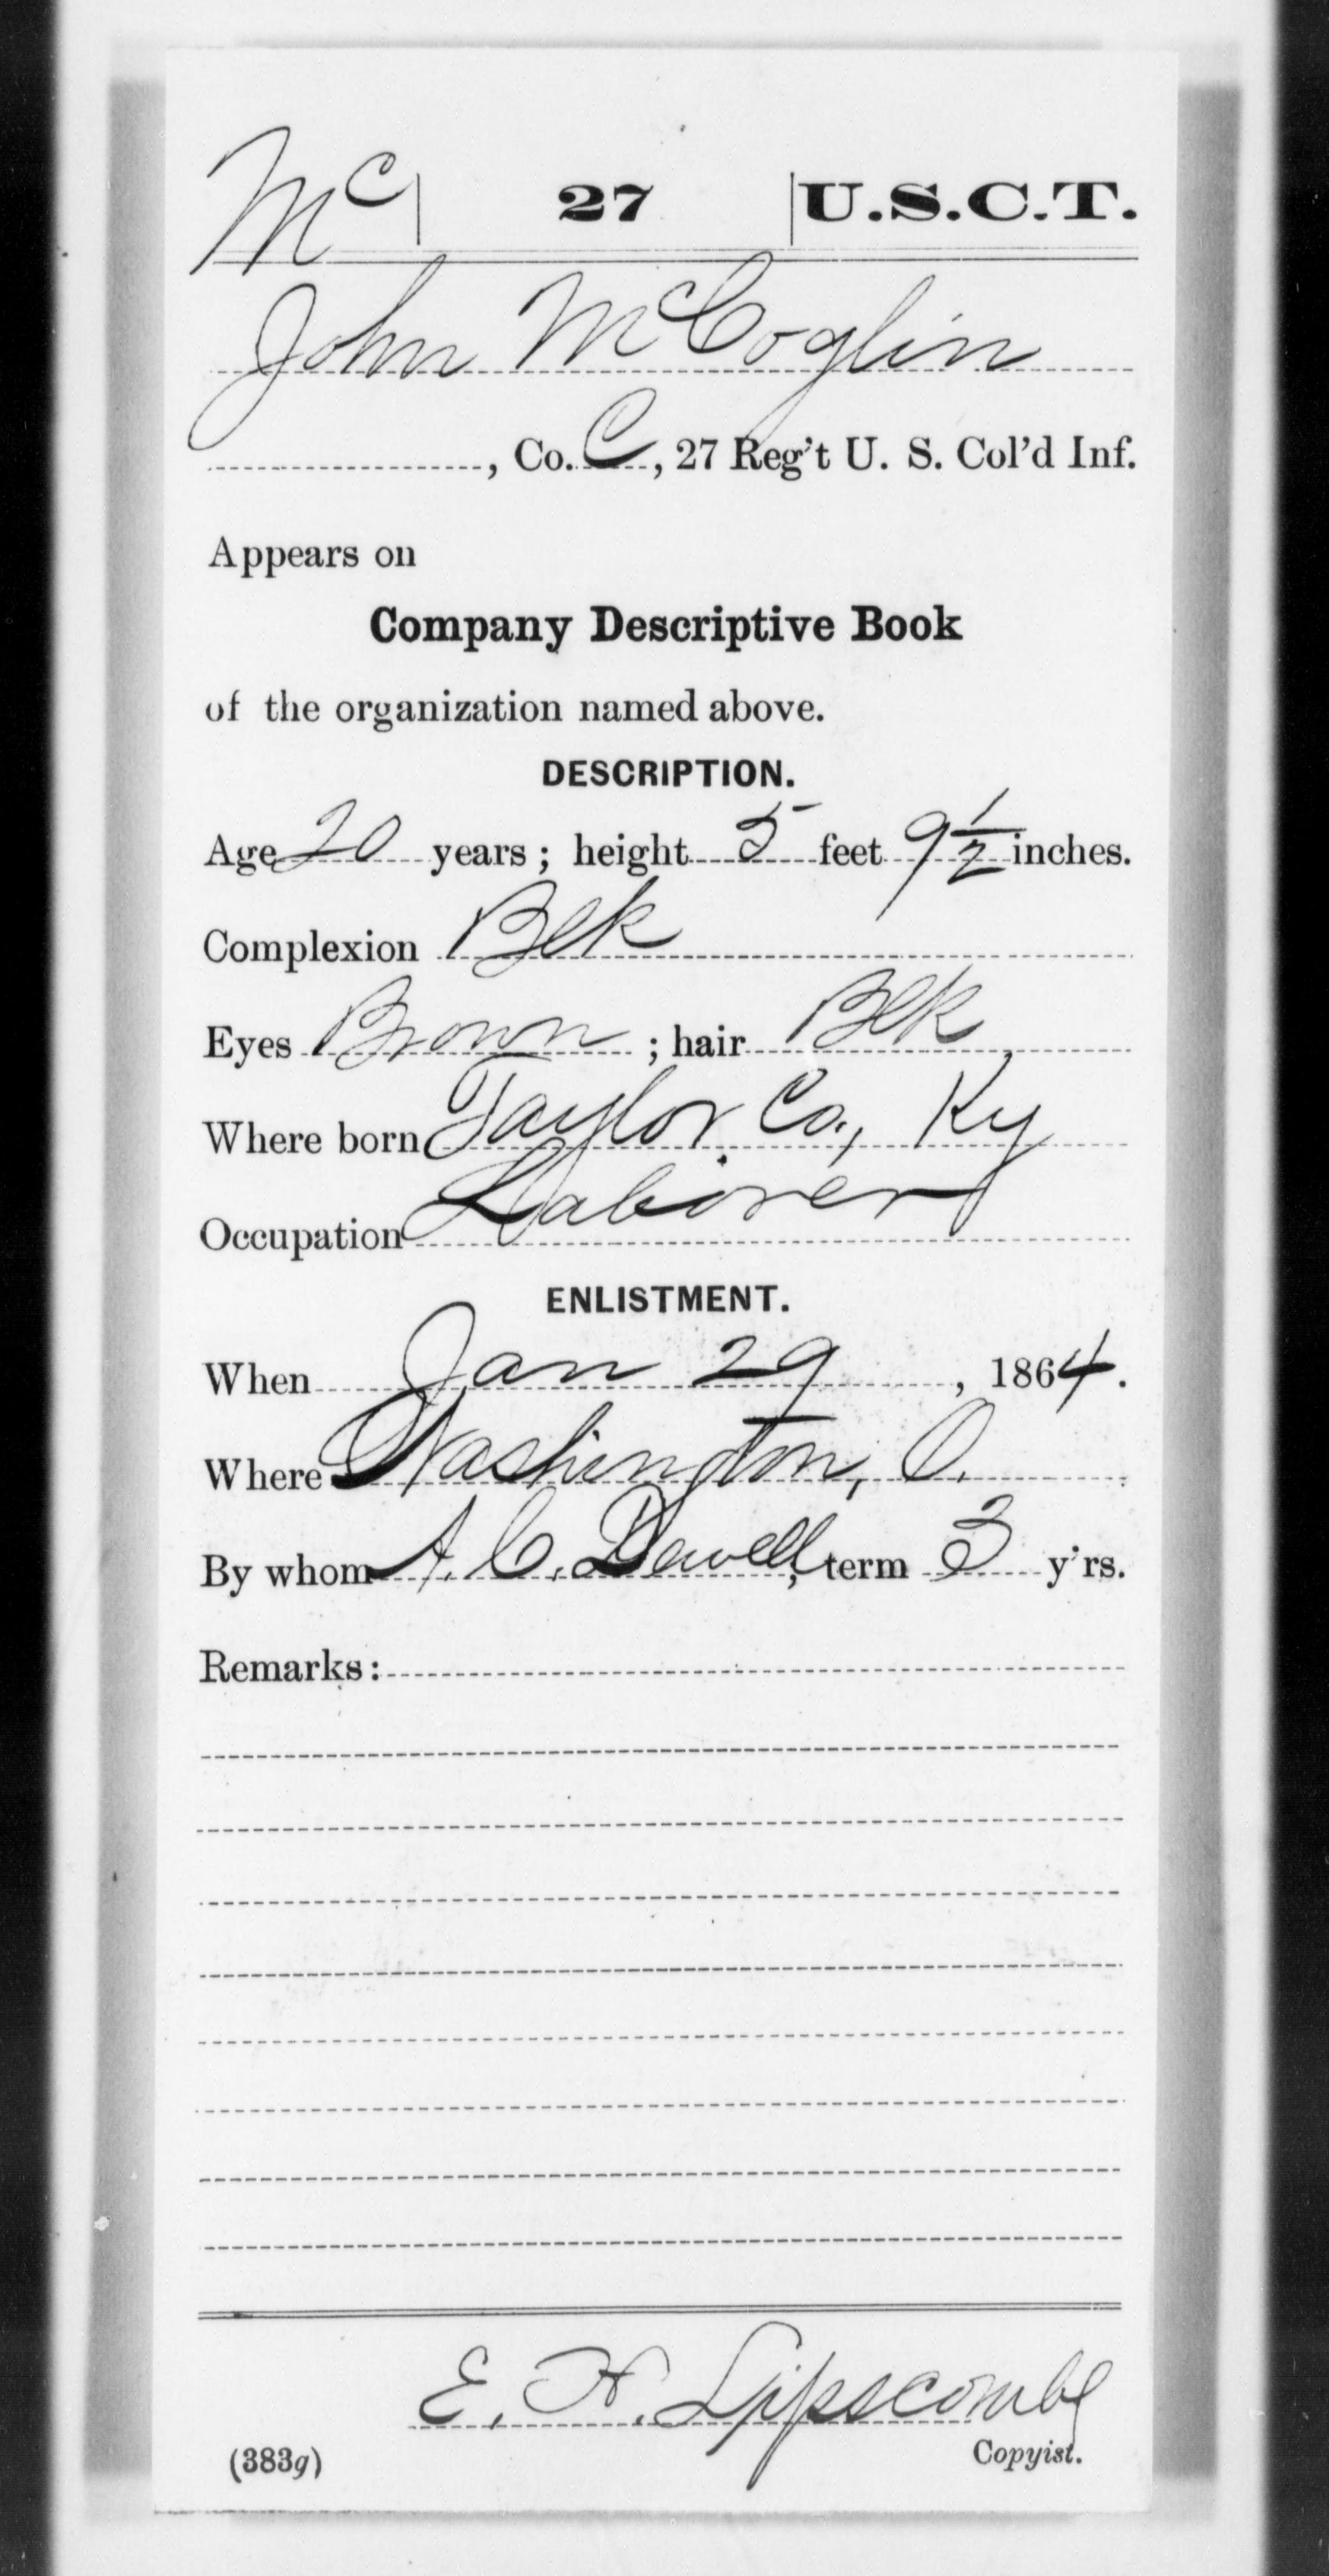 Mc 27 U.S.C.T.
John McCoglin
, Co. C, 27 Reg't U. S. Col'd Inf.
Appears on
Company Descriptive Book
of the organization named above.
DESCRIPTION.
Age 20 years; height 5 feet 9 1/2 inches.
Complexion Blk
Eyes Brown; hair Blk
Where born Taylor Co., Ky
Occupation Laborer
ENLISTMENT.
When Jan 29, 1864.
Where Washington, O.
By whom A. C. Dewell, term 3 y'rs.
Remarks:
E. H. Lipscomb
(383g) Copyist.